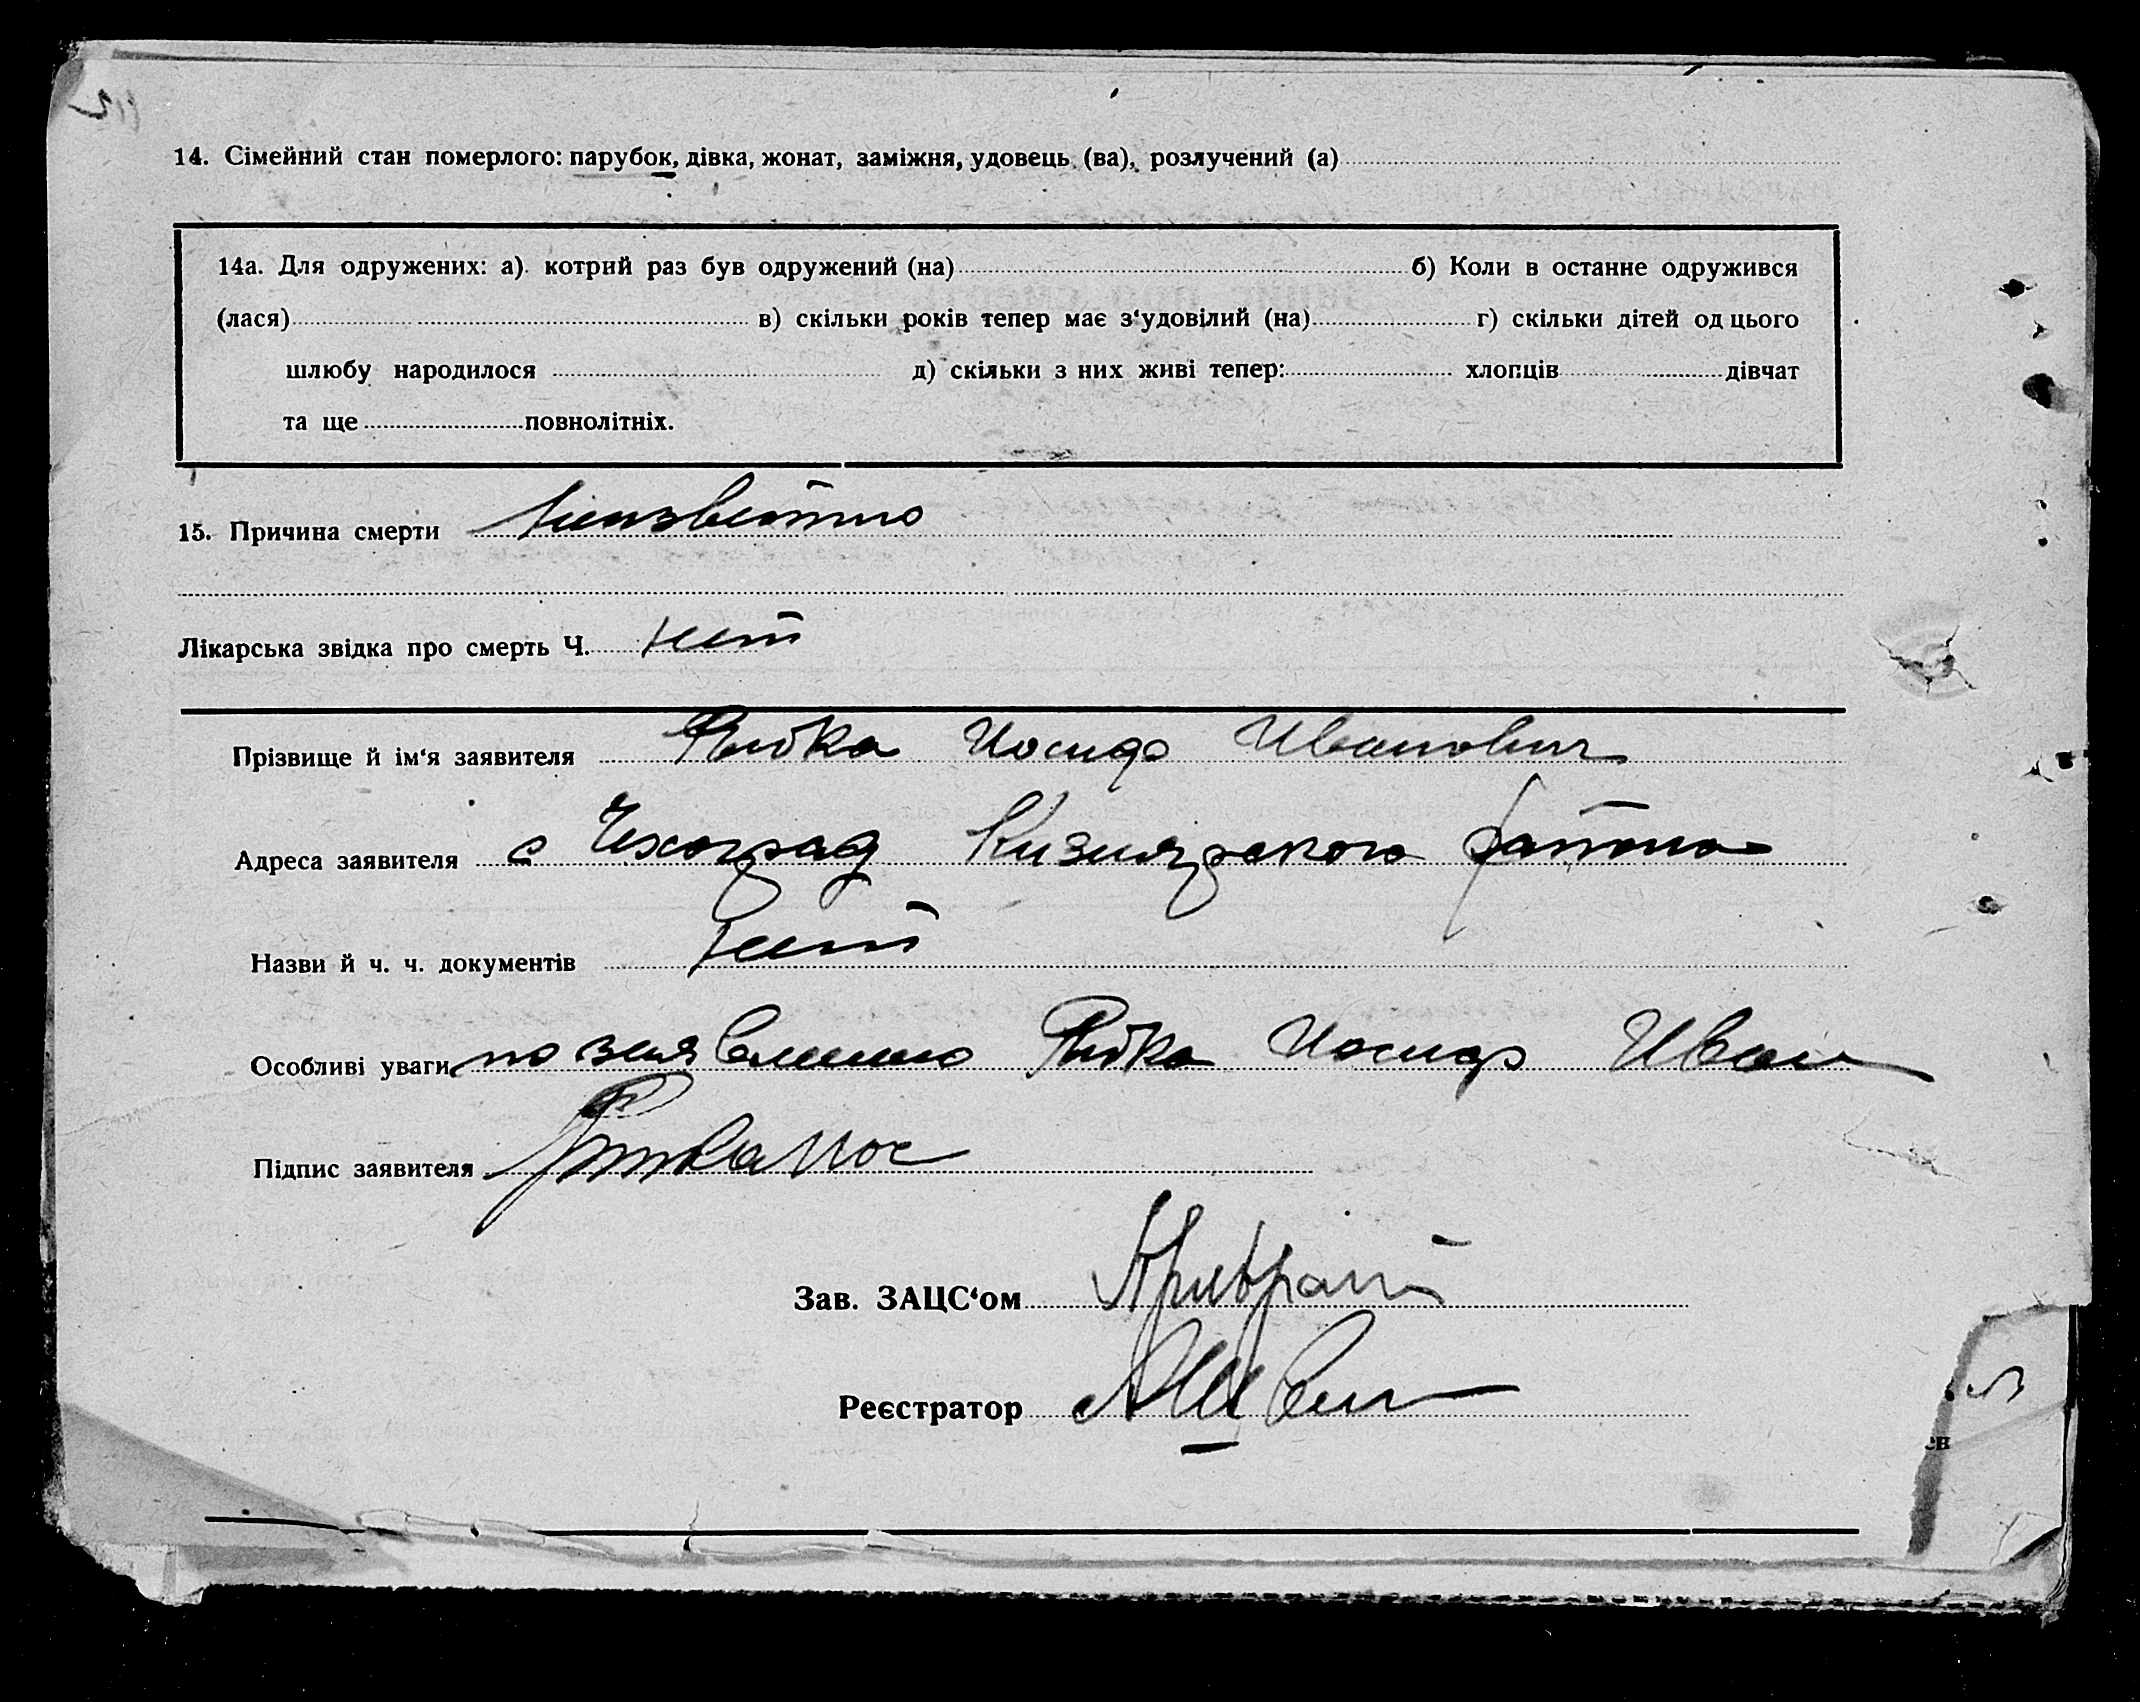 14. Сімейний стан померлого: парубок, дівка, жонат, заміжня, удовець (ва), розлучений (а)
14а. Для одружених: а) котрий раз був одружений (на) б) Коли в останнє одружився
(лася) в) скільки років тепер має з‘удовілий (на) г) скільки дітей од цього
шлюбу народилося д) скільки з них живі тепер: хлопців дівчат
та ще повнолітніх.
15. Причина смерти Неизвестно
Лікарська звідка про смерть Ч. нет
Прізвище й ім‘я заявителя Иосиф Иванович
Адреса заявителя с Чехоград Кизиярского района
Назви й ч. ч. документів нет
Особливі уваги по заявлению Иосиф Иван
Підпис заявителя
Зав. ЗАЦС‘ом
Реєстратор